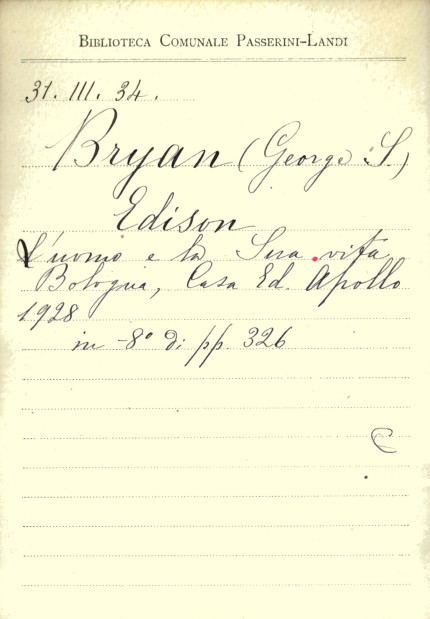 BIBLIOTECA COMUNALE PASSERINI-LANDI
31. III. 34.
Bryan (George S.)
Edison
L'uomo e la Sua vita
Bologna, Casa Ed. Apollo
1928
in -8° di pp. 326
C